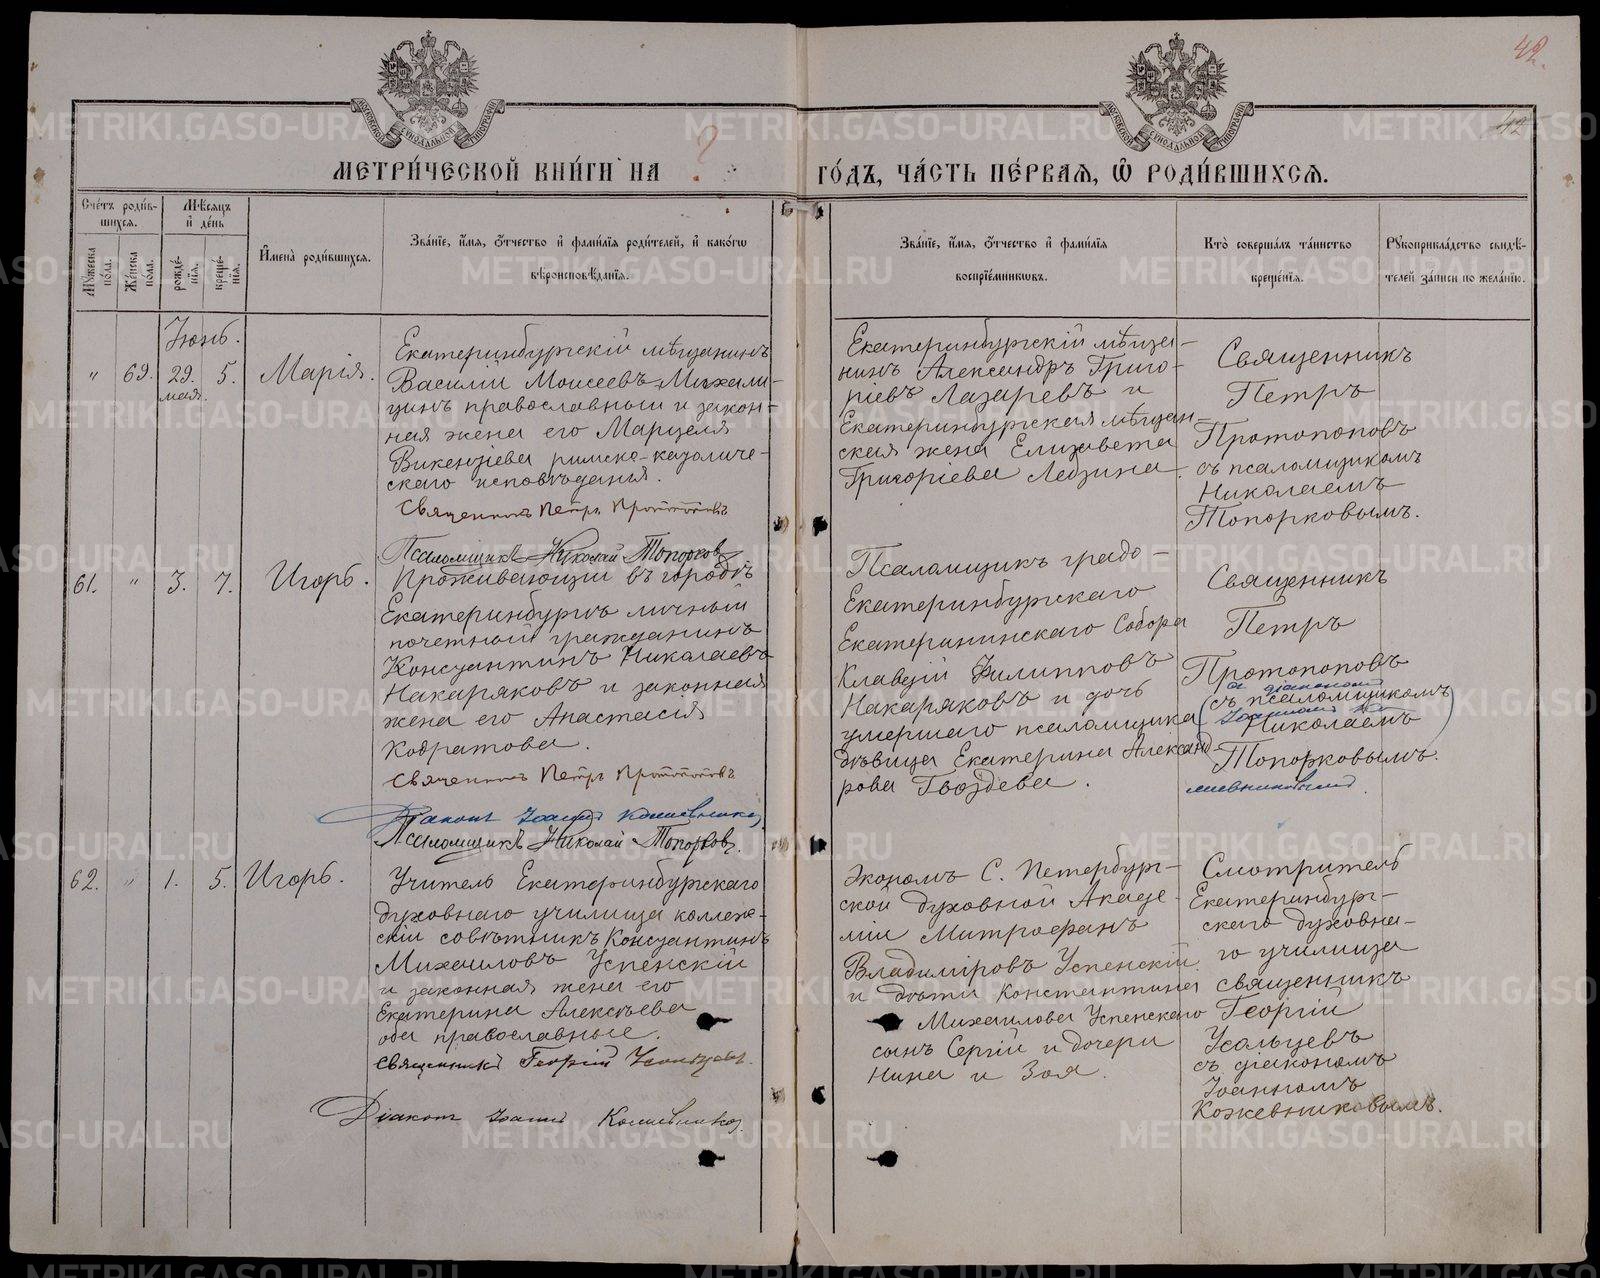 42.
42
МОСКОВСКОЙ СѴНОДАЛЬНОЙ ТИПОГРАФІИ
МОСКОВСКОЙ СѴНОДАЛЬНОЙ ТИПОГРАФІИ
МЕТРИ́ЧЕСКОЙ КНИ́ГИ НА ? ГО́ДЪ, ЧА́СТЬ ПЕ́РВАѦ, Ѽ РОДИ́ВШИХСѦ.
Сче́тъ роди́в-
шихсѧ.
Мꙋжеска по́ла.
Же́нска по́ла.
Мѣ́сѧцъ
и҆ де́нь
рожде́нїѧ.
креще́нїѧ.
И҆мена̀ роди́вшихсѧ.
Зва́нїе, и҆́мѧ, ѻ҆́тчество и҆ фамилїѧ роди́телей, и҆ како́гѡ
вѣроисповѣ́данїѧ.
Зва́нїе, и҆́мѧ, ѻ҆́тчество и҆ фами́лїѧ
воспрїе́мникѡвъ.
Кто̀ соверша́лъ та́инство
креще́нїѧ.
Рꙋкоприкла́дство свидѣ́-
телей за́писи по жела́нїю.
Іюнь.
" 69. 29. мая. 5. Марія.
Екатеринбургскій мѣщанинъ
Василій Моисеевъ Михали-
цинъ православный и закон-
ная жена его Марцеля
Викентіева римско-католиче-
скаго исповѣданія.
Священникъ Петръ Протопоповъ
Псаломщикъ Николай Топорков
Екатеринбургскій мѣща-
нинъ Александръ Григо-
ріевъ Лазаревъ и
Екатеринбургская мѣщан-
ская жена Елизавета
Григоріева Лебзина.
Священникъ
Петръ
Протопоповъ
съ псаломщикомъ
Николаемъ
Топорковымъ.
61. " 3. 7. Игорь.
Проживающій въ городѣ
Екатеринбургѣ личный
почетный гражданинъ
Константинъ Николаевъ
Накаряковъ и законная
жена его Анастасія
Кодратова.
Священникъ Петръ Протопоповъ
Діаконъ Іоаннъ Кожевников
Псаломщикъ Николай Топорков.
Псаломщикъ градо-
Екатеринбургскаго
Екатерининскаго Собора
Клавдій Филипповъ
Накаряковъ и дочь
умершаго псаломщика
дѣвица Екатерина Александ-
рова Гвоздева.
Священникъ
Петръ
Протопоповъ
діакономъ
(съ псаломщикомъ
Іоанномъ Ко
Николаемъ)
Топорковымъ.
жевниковымъ.
62. " 1. 5. Игорь.
Учитель Екатеринбургскаго
духовнаго училища коллеж-
скій совѣтникъ Константинъ
Михаиловъ Успенскій
и законная жена его
Екатерина Алексѣева
оба православные.
Священникъ Георгій Усольцевъ.
Діаконъ Іоаннъ Кожевников
Экономъ С. Петербург-
ской духовной Акаде-
міи Митрофанъ
Владиміровъ Успенскій
и дѣти Константина
Михаилова Успенскаго
сынъ Сергій и дочери
Нина и Зоя.
Смотритель
Екатеринбург-
скаго духовна-
го училища
священникъ
Георгій
Усольцевъ
съ діакономъ
Іоанномъ
Кожевниковымъ.
METRIKI.GASO-URAL.RU